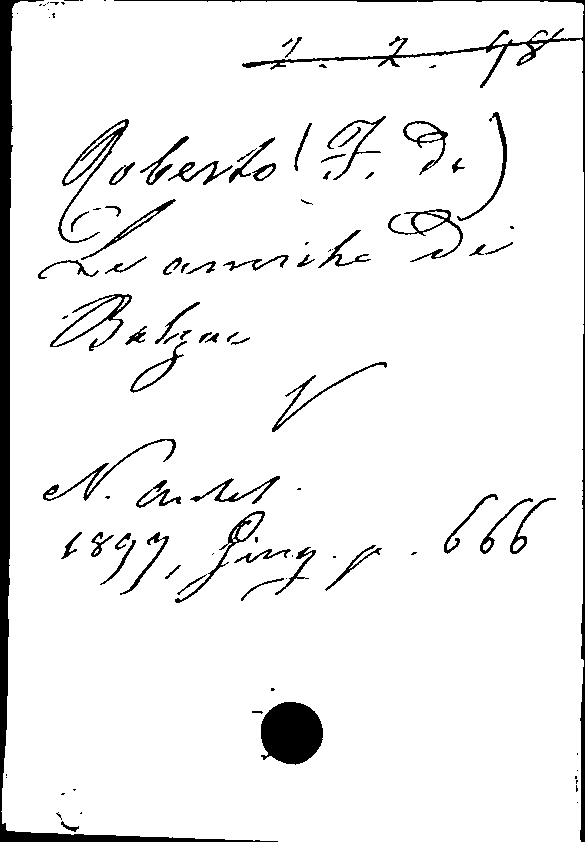 2. 2. 98
Roberto (F. De)
Le amiche di
Balzac
V
N. Antol.
1897, Giug. p. 666